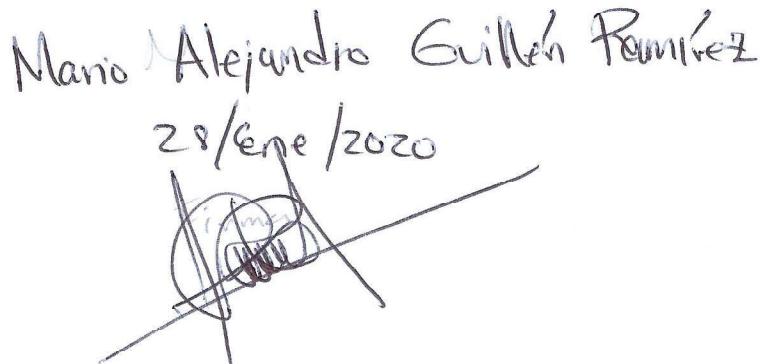 Mario Alejandro Guillén Ramírez
28/Ene/2020
Firma